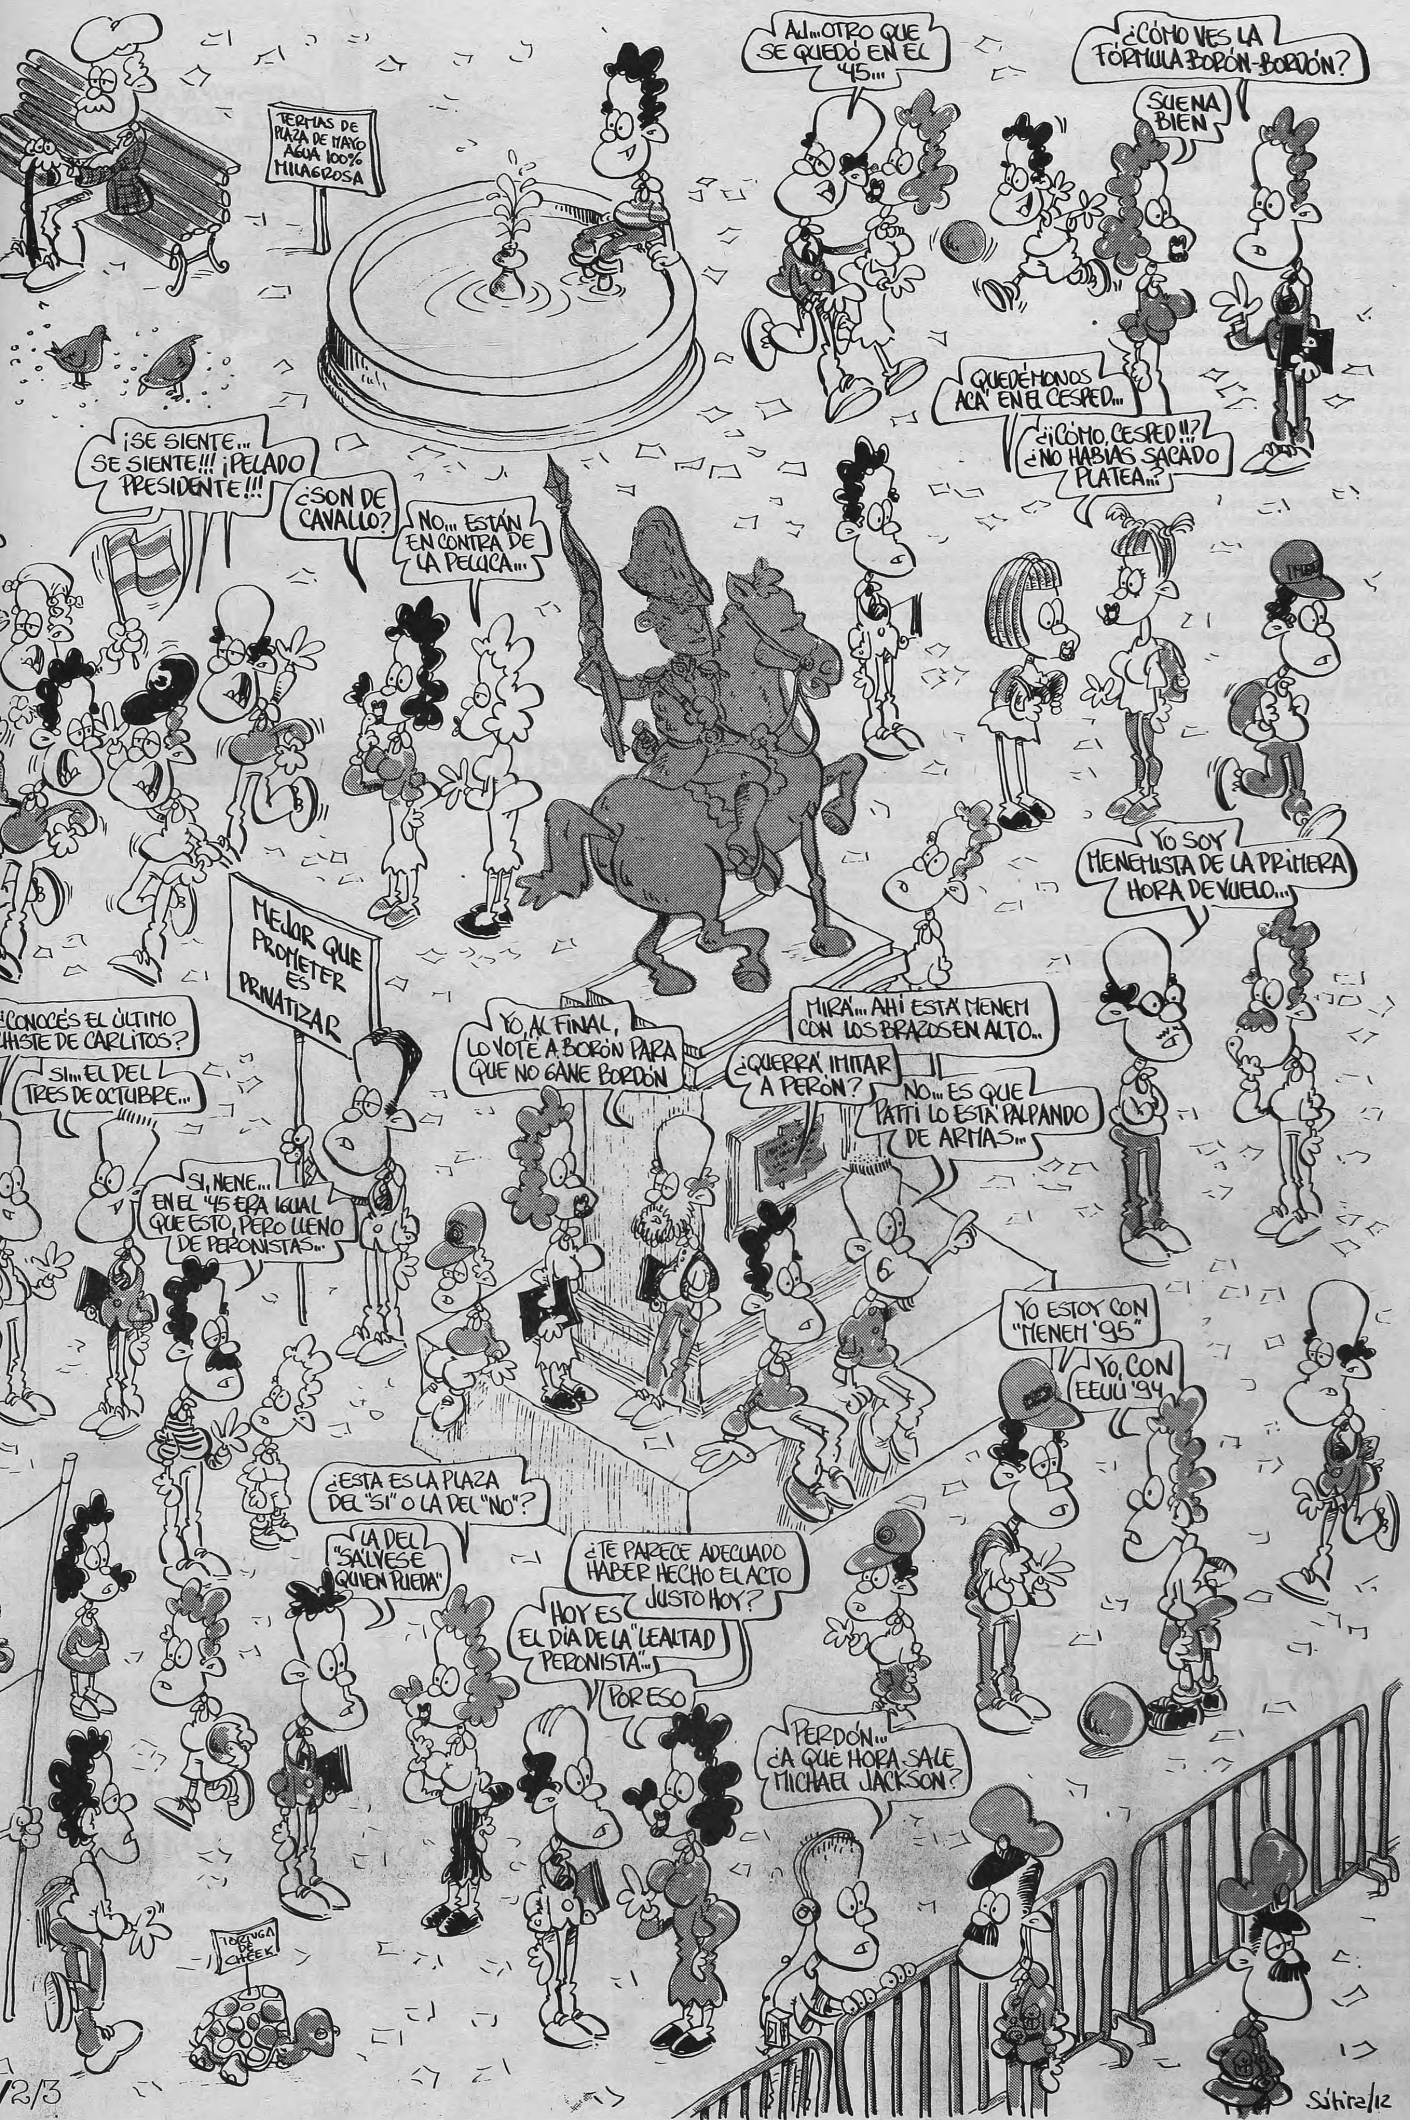 TERMAS DE
PLAZA DE MAYO
AGUA 100%
MILAGROSA
AJ...OTRO QUE
SE QUEDÓ EN EL
'45...
¿CÓMO VES LA
FÓRMULA BORÓN-BORDÓN?
SUENA
BIEN
QUEDÉMONOS
ACÁ EN EL CESPED...
¿¡CÓMO, CESPED!!?
¿NO HABÍAS SACADO
PLATEA..?
¡SE SIENTE...
SE SIENTE!!! ¡PELADO
PRESIDENTE!!!
¿SON DE
CAVALLO?
NO... ESTÁN
EN CONTRA DE
LA PELUCA...
YO SOY
MENEMISTA DE LA PRIMERA
HORA DE VUELO...
MEJOR QUE
PROMETER
ES
PRIVATIZAR
¿CONOCÉS EL ÚLTIMO
CHISTE DE CARLITOS?
SI... EL DEL
TRES DE OCTUBRE...
YO, AL FINAL,
LO VOTÉ A BORÓN PARA
QUE NO GANE BORDÓN
MIRÁ... AHÍ ESTÁ MENEM
CON LOS BRAZOS EN ALTO...
¿QUERRÁ IMITAR
A PERÓN?
NO... ES QUE
PATTI LO ESTÁ PALPANDO
DE ARMAS...
SI, NENE...
EN EL '45 ERA IGUAL
QUE ESTO, PERO LLENO
DE PERONISTAS...
YO ESTOY CON
"MENEM '95"
YO, CON
EEUU '94
¿ESTA ES LA PLAZA
DEL "SI" O LA DEL "NO"?
LA DEL
"SÁLVESE
QUIEN PUEDA"
¿TE PARECE ADECUADO
HABER HECHO EL ACTO
JUSTO HOY?
HOY ES
EL DÍA DE LA "LEALTAD
PERONISTA"...
POR ESO
PERDÓN...
¿A QUE HORA SALE
MICHAEL JACKSON?
TORTUGA
DE
CHEEK
/2/3
Sátira/12